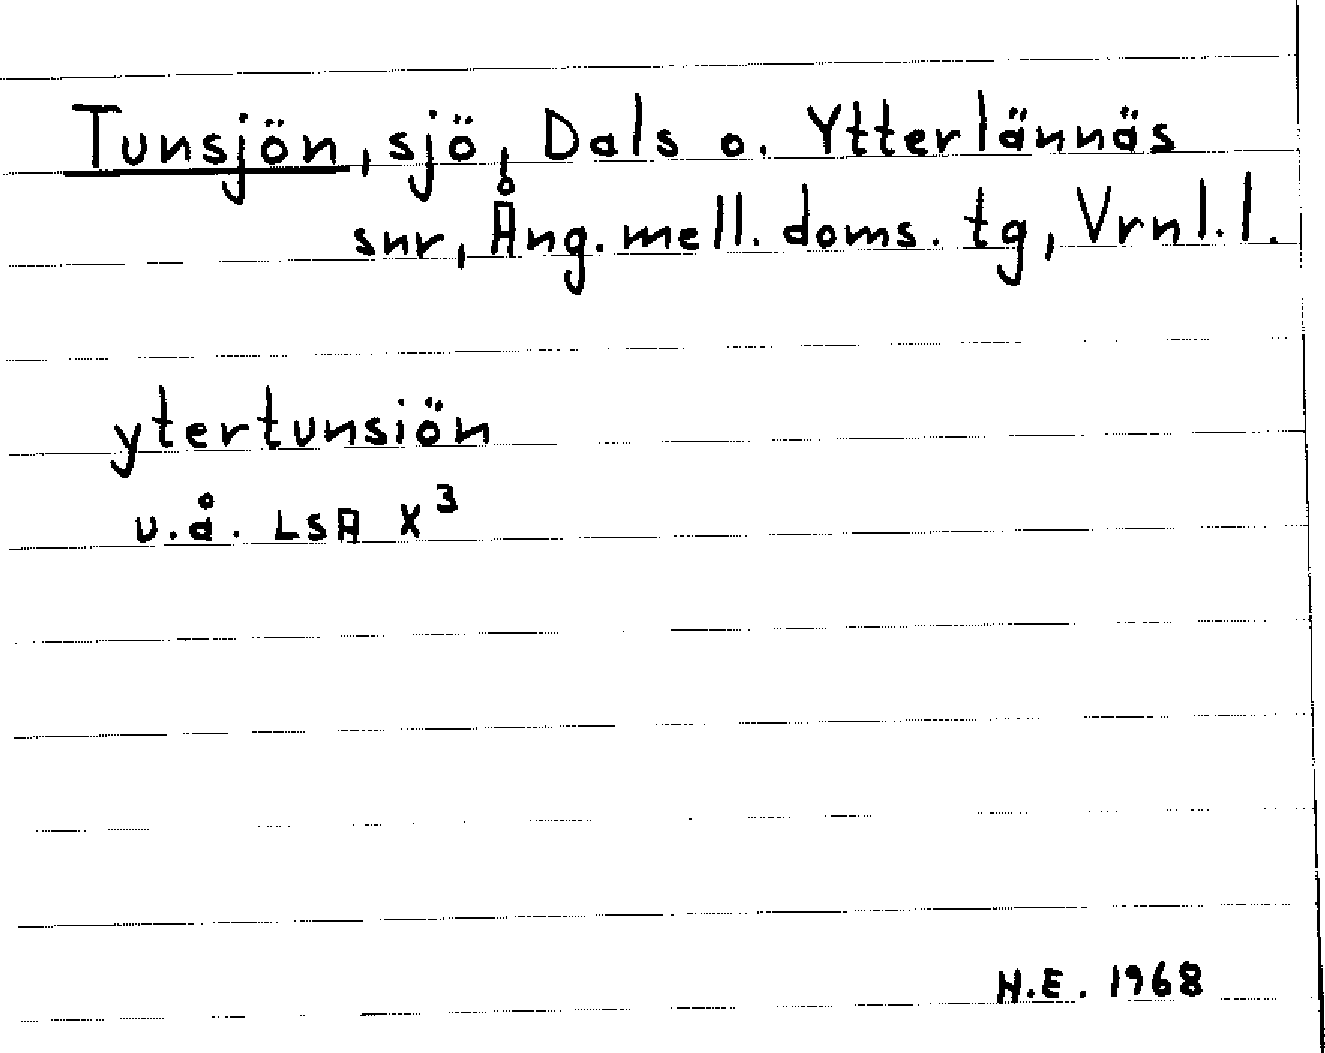 Tunsjön, sjö, Dals o. Ytterlännäs
snr, Ång. mell. doms. tg, Vrnl. l.
ytertunsiön
u.å. LSA X³
H.E. 1968